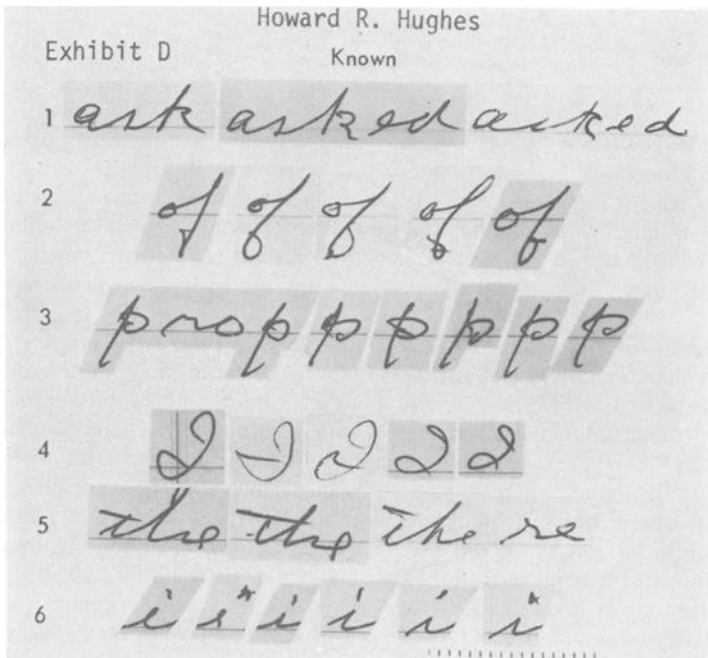 Howard R. Hughes
Exhibit D
Known
1 ask asked asked
2 of of of of of
3 prop p p p p p
4 I I I I I
5 the the the re
6 i i i i i i